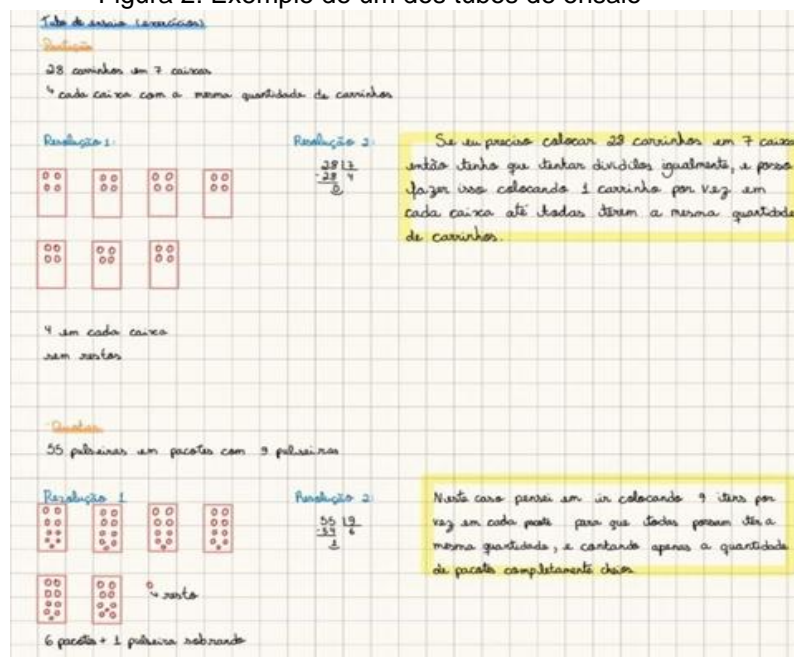 Figura 2: Exemplo de um dos tubos de ensaio
Tubo de ensaio (exercícios)
Partição
28 carrinhos em 7 caixas
↳ cada caixa com a mesma quantidade de carrinhos
Resolução 1:
Resolução 2:
28 | 7
-28 4
0
Se eu preciso colocar 28 carrinhos em 7 caixas
então tenho que tentar dividilos igualmente, e posso
fazer isso colocando 1 carrinho por vez em
cada caixa até todas terem a mesma quantidade
de carrinhos.
4 em cada caixa
sem restos
Quotas
55 pulseiras em pacotes com 9 pulseiras
Resolução 1
Resolução 2
55 | 9
-54 6
1
Neste caso pensei em ir colocando 9 itens por
vez em cada pacote para que todas possam ter a
mesma quantidade, e contando apenas a quantidade
de pacotes completamente cheios.
↳ resto
6 pacotes + 1 pulseira sobrando